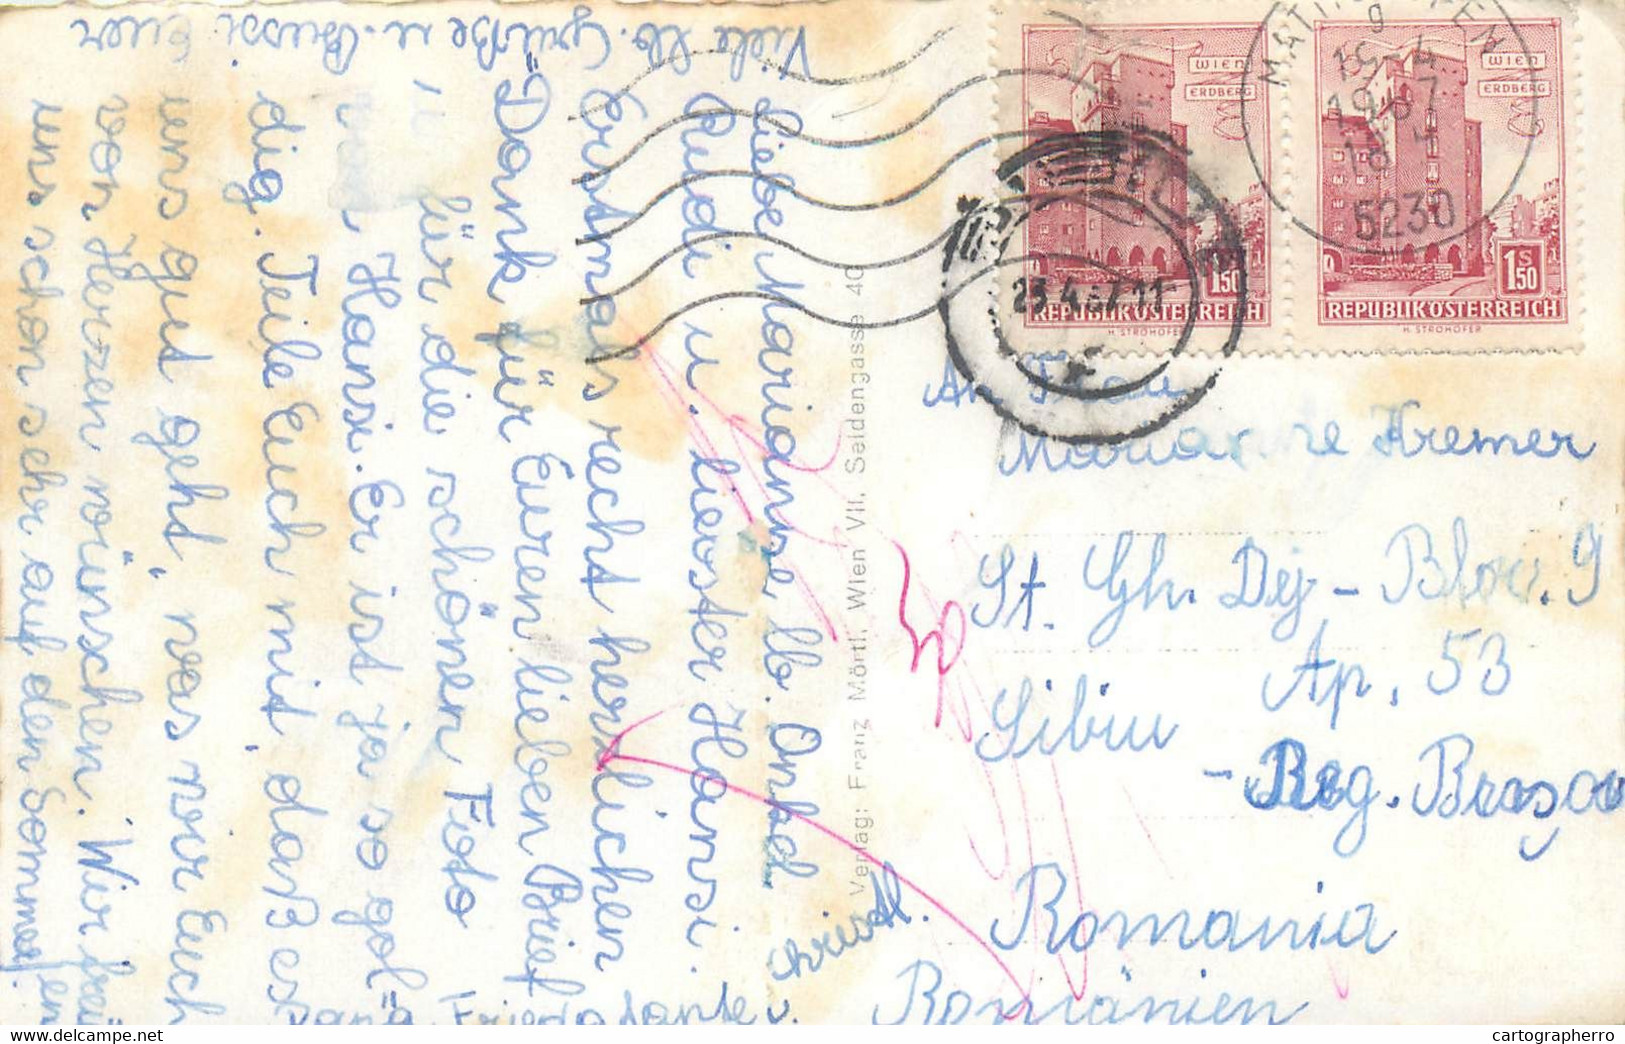 Liebe Marianne, lb. Onkel
Rudi u. liebster Hansi.
Erstmals recht herzlichen
Dank für Euren lieben Brief
u. für die schönen Foto
Hansi. Er ist ja so gol
dig. Teile Euch mit, daß es
uns gut geht, was wir Euch
von Herzen wünschen. Wir
uns schon sehr auf den Sommer
Viele lb. Grüße u. Bussi Euer
Frieda Tante u.
Verlag: Franz Mörtl, Wien VII. Seidengasse 40
WIEN
ERDBERG
1 S 50
REPUBLIK ÖSTERREICH
H. STROHOFER
WIEN
ERDBERG
1 S 50
REPUBLIK ÖSTERREICH
H. STROHOFER
5230
23.4.67.11
An Frau
Marianne Kremer
St. Gh. Dej - Bloc. 9
Ap. 53
Sibiu
- Reg. Brașov
Romania
Romänien
cartographerro